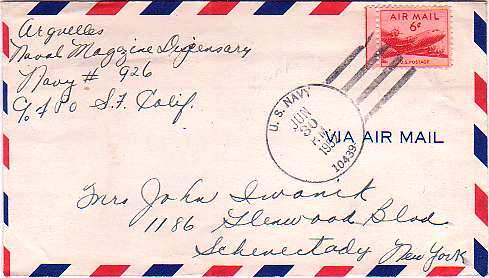 Arguelles
Naval Magazine Dispensary
Navy # 926
c/o FPO S.F. Calif.
AIR MAIL
6¢
U.S. POSTAGE
U.S. NAVY
JUN
30
P.M.
10439
VIA AIR MAIL
Mrs John Iwanik
1186 Glenwood Blvd
Schenectady New York